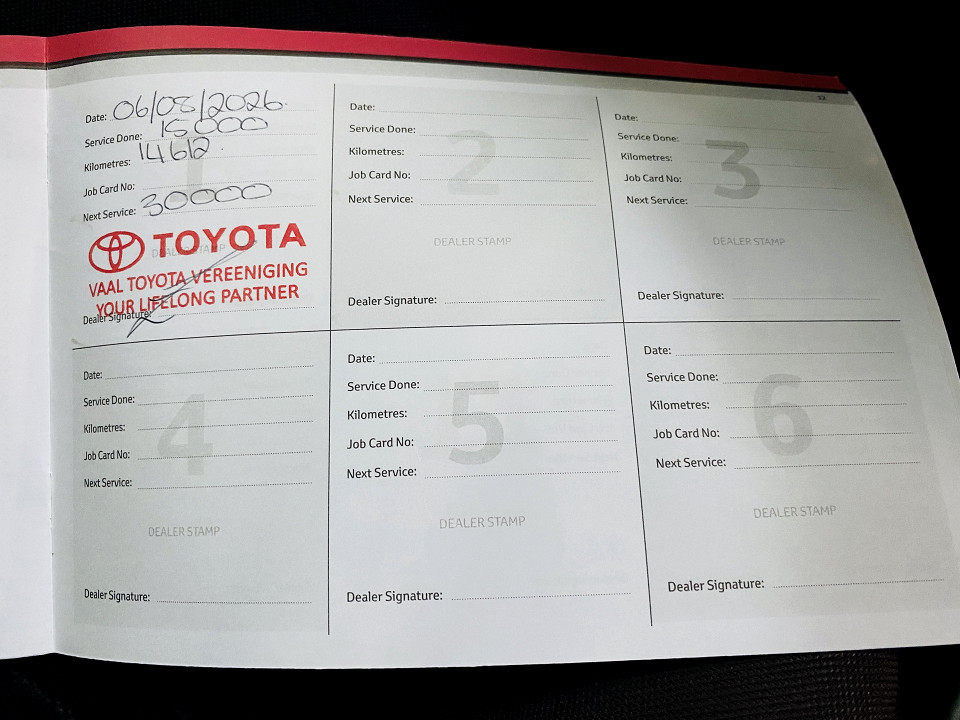 12
Date: 06/08/2026.
Service Done: 15000
Kilometres: 14612.
Job Card No:
Next Service: 30000
1
DEALER STAMP
TOYOTA
VAAL TOYOTA VEREENIGING
YOUR LIFELONG PARTNER
Dealer Signature:
Date:
Service Done:
Kilometres:
Job Card No:
Next Service:
2
DEALER STAMP
Dealer Signature:
Date:
Service Done:
Kilometres:
Job Card No:
Next Service:
3
DEALER STAMP
Dealer Signature:
Date:
Service Done:
Kilometres:
Job Card No:
Next Service:
4
DEALER STAMP
Dealer Signature:
Date:
Service Done:
Kilometres:
Job Card No:
Next Service:
5
DEALER STAMP
Dealer Signature:
Date:
Service Done:
Kilometres:
Job Card No:
Next Service:
6
DEALER STAMP
Dealer Signature: